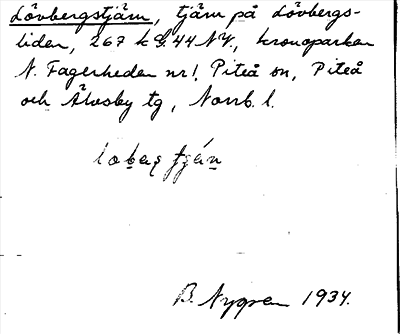 Lövbergstjärn, tjärn på Lövbergs-
liden, 267 k G. 44 NV., kronoparken
N. Fagerheden nr 1, Piteå sn, Piteå
och Älvsby tg, Norrb. l.
B. Nygren 1934.